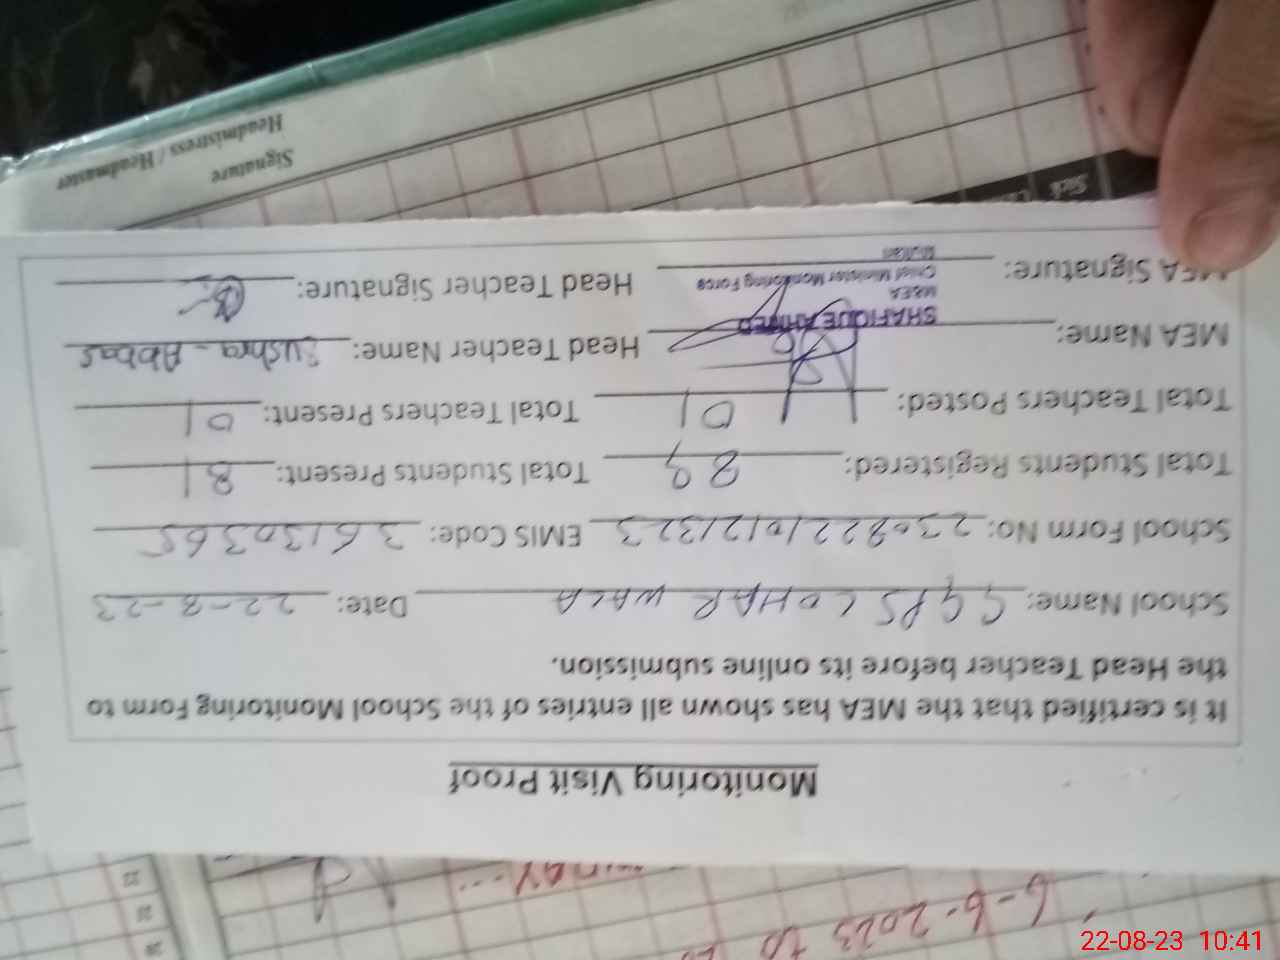 6-6-2023 to
Monitoring Visit Proof
It is certified that the MEA has shown all entries of the School Monitoring Form to
the Head Teacher before its online submission.
School Name: GGPS LOHAR WALA Date: 22-8-23
School Form No: 23082210121323 EMIS Code: 36130365
Total Students Registered: 89 Total Students Present: 81
Total Teachers Posted: 01 Total Teachers Present: 01
MEA Name: Head Teacher Name: Bushra - Abbas
SHAFIQUE AHMED
M&EA
Chief Minister Monitoring Force
Multan
MEA Signature: Head Teacher Signature:
Sick
Signature
Headmistress / Headmaster
22-08-23 10:41